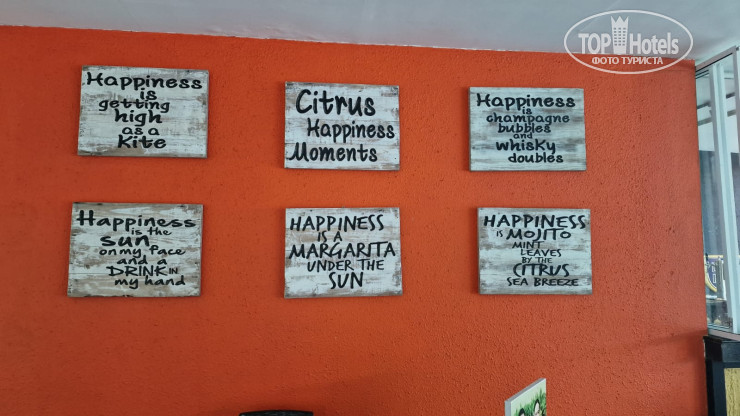 TOPHotels
ФОТО ТУРИСТА
Happiness
is
getting
high
as a
Kite
Citrus
Happiness
Moments
Happiness
is
champagne
bubbles
and
whisky
doubles
Happiness
is the
sun
on my face
and a
DRINK IN
my hand
HAPPINESS
IS A
MARGARITA
UNDER THE
SUN
HAPPINESS
is MOJITO
MINT
LEAVES
BY THE
CITRUS
SEA BREEZE